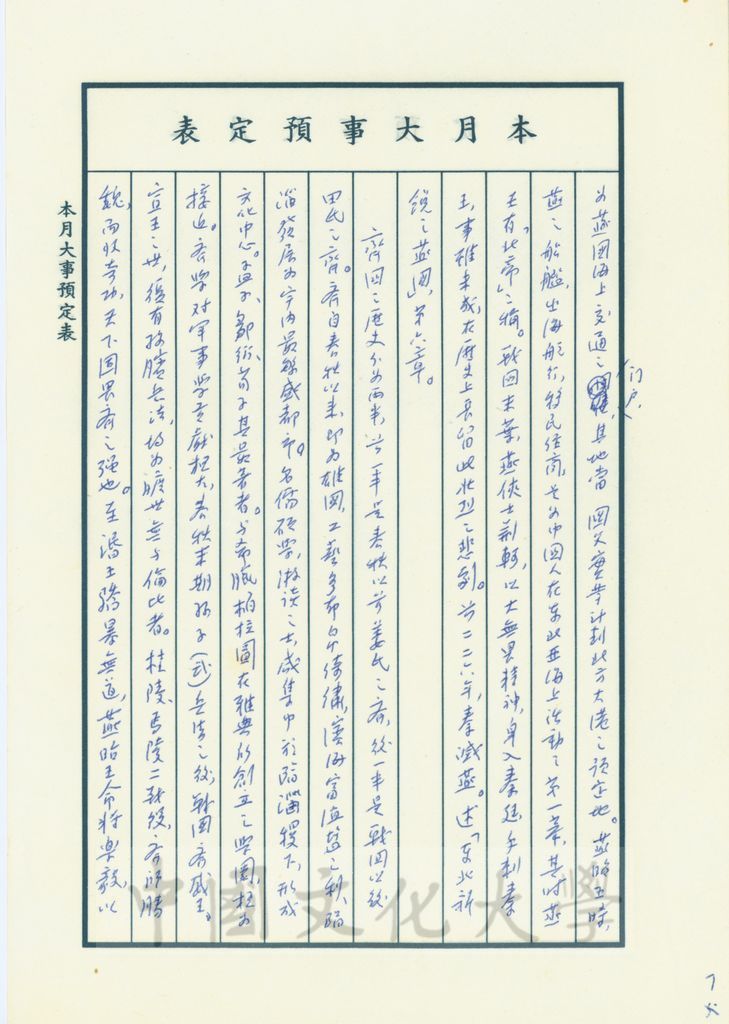 本月大事預定表
為燕國海上交通之門户,其地當 國父實業計劃北方大港之預定地。燕昭王時,
燕之船艦,出海航行,移民經商,是為中國人在東北亞海上活動之第一幕,其時燕
王有「北帝」之稱。戰國末葉,燕俠士荊軻,以大無畏精神,身入秦廷,手刺秦
王,事雖未成,在歷史上長留此壯烈之悲劇。前二二六年,秦滅燕。述「東北新
銳之燕國」,第六章。
齊國之歷史分為兩半,前一半是春秋以前姜氏之齊,後一半是戰國以後
田氏之齊。齊自春秋以來,即為雄國,工藝多布帛綺繡,濱海富漁鹽之利,臨
淄發展為宇內最繁盛都市。名儒碩學,游談之士,咸集中於臨淄稷下,形成
文化中心。孟子、鄒衍、荀子其最著者。與希臘柏拉圖在雅典所創立之學園,極為
接近。齊學对軍事學貢獻極大,春秋末期孫子(武)兵法之後,戰國齊威王、
宣王之世,復有孫臏兵法,均為曠世無與倫比者。桂陵、馬陵二戰役,齊師勝
魏,而收奇功,天下固畏齊之強也。至湣王驕暴無道,燕昭王命將樂毅,以
本月大事預定表
中國文化大學
7